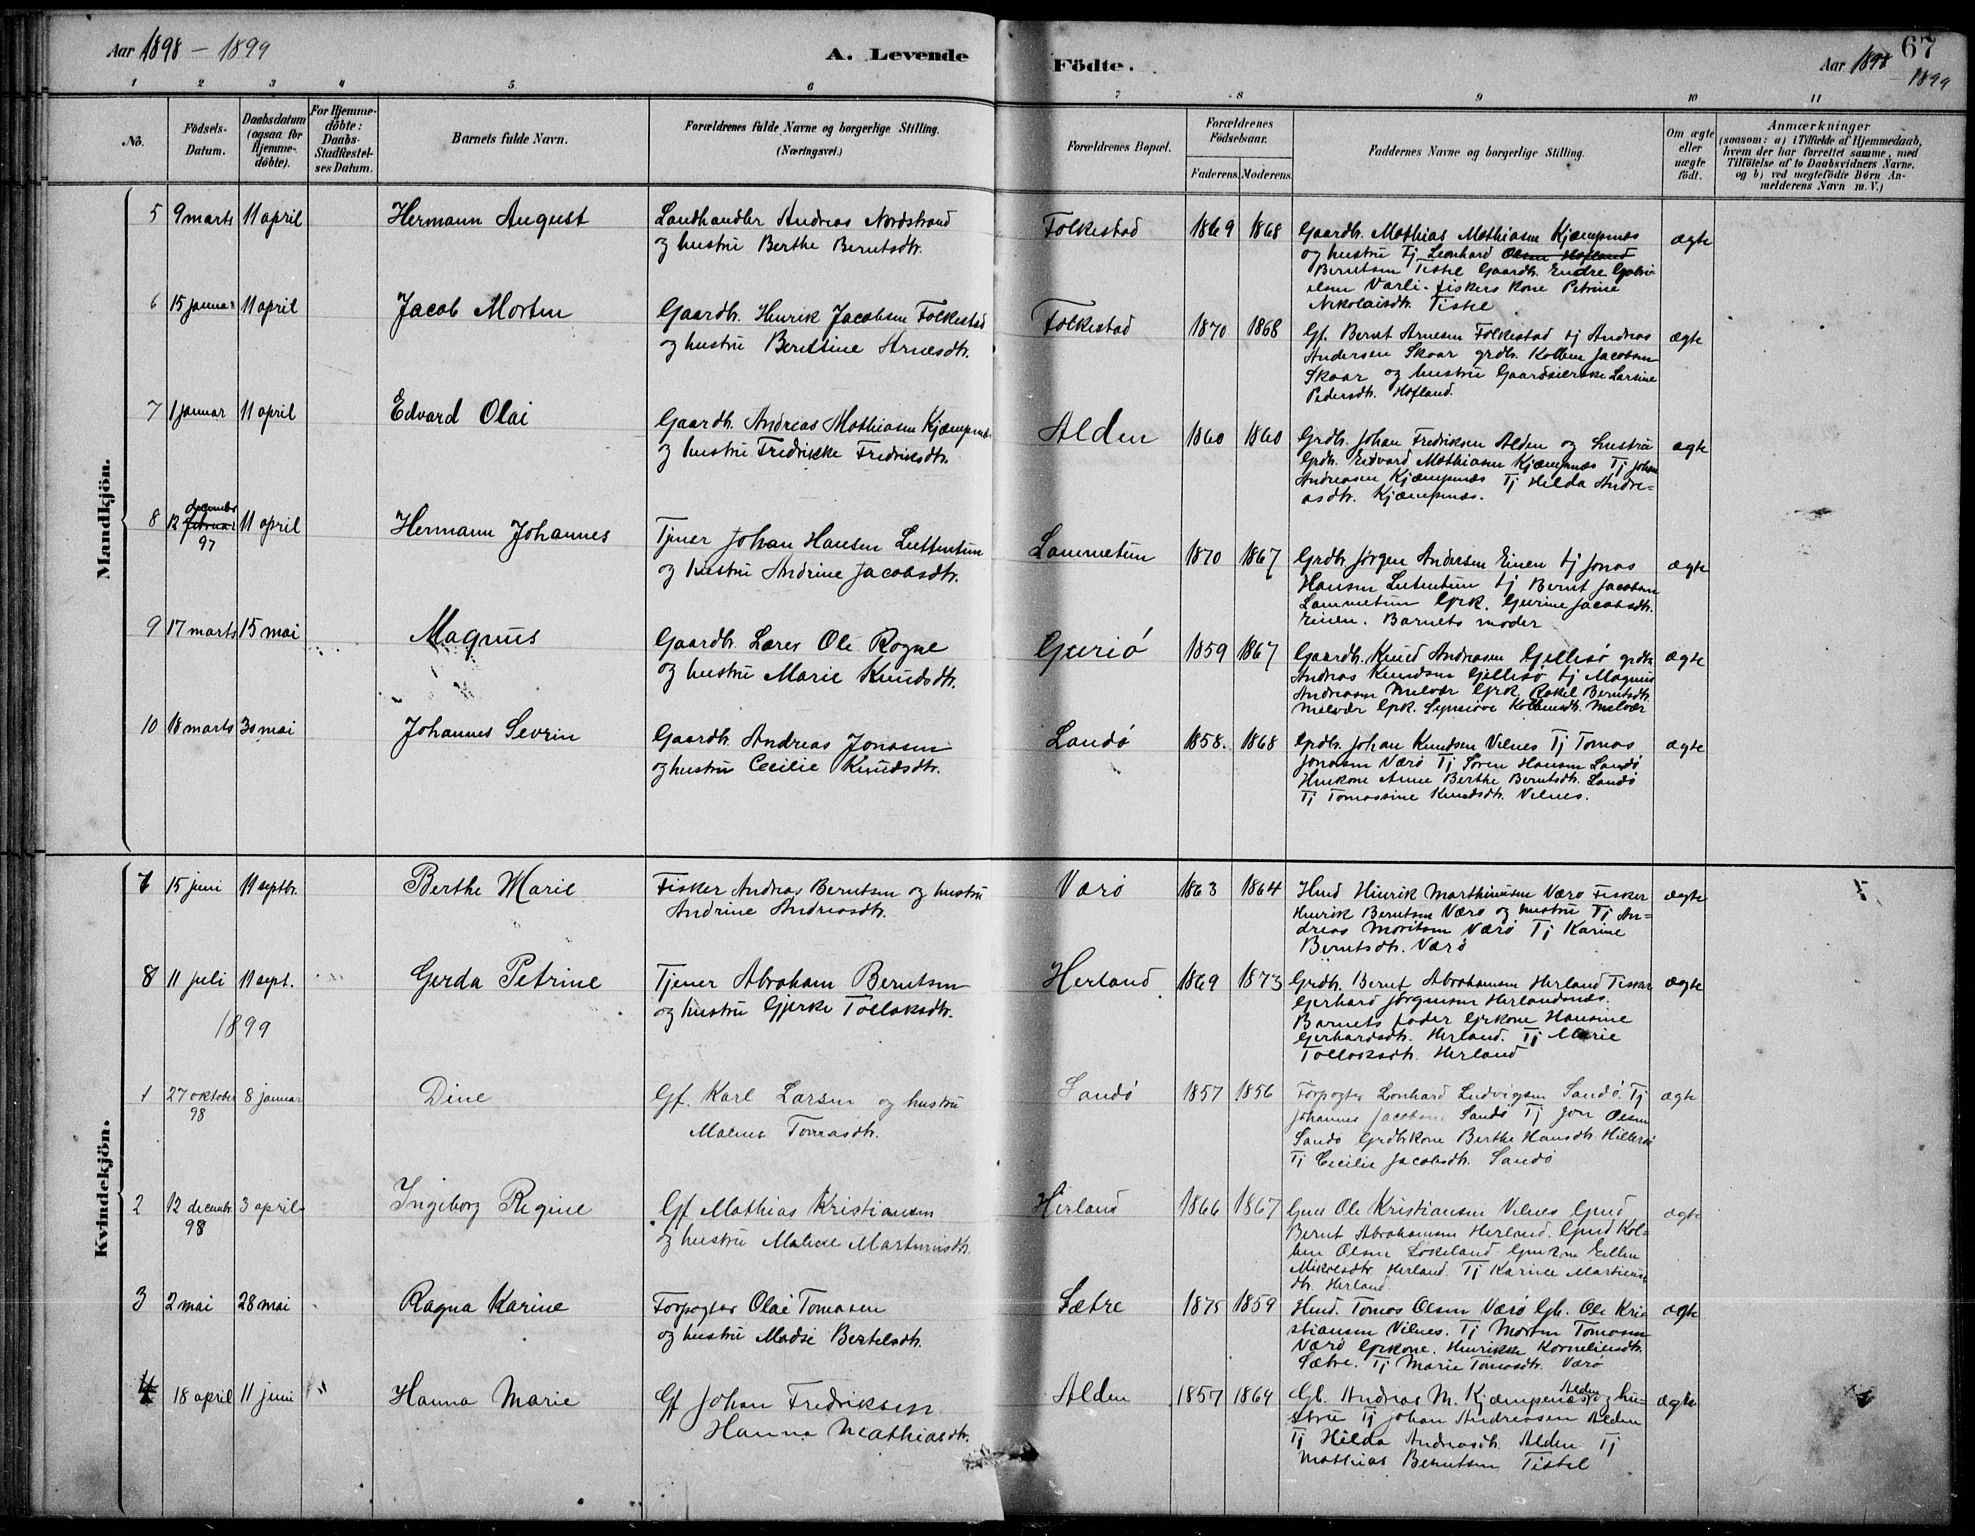 Aar 1898 - 1899
A. Levende
Födte.
Aar 1898
67
1899
1 2 3 4 5 6 7 8 9 10 11
No.
Födsels-
Datum.
Daabsdatum
(ogsaa for
Hjemme-
döbte).
For Hjemme-
döbte:
Daabs-
Stadfæstel-
ses Datum.
Barnets fulde Navn.
Forældrenes fulde Navne og borgerlige Stilling.
(Næringsvei.)
Forældrenes Bopæl.
Forældrenes
Födselsaar.
Faderens. Moderens.
Faddernes Navne og borgerlige Stilling.
Om ægte
eller
uægte
födt.
Anmærkninger
(saasom: a) i Tilfælde af Hjemmedaab,
hvem der har forrettet samme, med
Tilföielse af to Daabsvidners Navne,
og b) ved uægtefödte Börn An-
melderens Navn m.V.)
Mandkjön.
5 9 marts 11 april Hermann August
Landhandler Andreas Nordstrand
og hustru Berthe Berntsdtr.
Folkestad 1869 1868
Gaardbr. Mathias Mathiasen Kjæmpnæs
og hustru Tj Leonhard Olsen Hofland
Berntsen Tistel Gaardbr. Endre Gabri-
elsen Varli. fiskers kone Petrine
Nikolaisdtr. Tistel
ægte
6 15 januar 11 april Jacob Morten
Gaardbr. Henrik Jacobsen Folkestad
og hustru Berntine Arnesdtr.
Folkestad 1870 1868
Gf. Bernt Arnesen Folkestad tj Andreas
Andersen Skaar grdbr. Kolben Jacobsen
Skaar og hustru Gaardeierske Larsine
Pedersdtr. Hofland.
ægte
7 1 januar 11 april Edvard Olai
Gaardbr. Andreas Mathiasen Kjæmpnæs
og hustru Fredrikke Fredriksdtr.
Alden 1860 1860
Grdbr. Johan Fredriksen Alden og hustru
Grdb. Edvard Mathiasen Kjæmpnæs Tj Johan
Andreasen Kjæmpnæs Tj Hilda Andre-
asdtr. Kjæmpnæs.
ægte
8 12 februar december 97 11 april Hermann Johannes
Tjener Johan Hansen Luttentun
og hustru Andrine Jacobsdtr.
Lammetun 1870 1867
Grdbr. Jørgen Andersen Einen tj Jonas
Hansen Lutentun tj Bernt Jacobsen
Lammetun Grk. Gurine Jacobsdtr.
Einen. Barnets moder
ægte
9 17 marts 15 mai Magnus
Gaardbr. Lærer Ole Rogne
og hustru Marie Knudsdtr.
1859 1867
Gaardbr. Knud Andreasen Gjellesø grdbr.
Andreas Knudsen Gjellesø tj Magnus
Andreasen Melvær Grk. Rakel Berntsdtr.
Melvær Grk. Synnøve Kolbensdtr. Melvær
ægte
10 18 marts 30 mai Johannes Severin
Gaardbr. Andreas Jonasen
og hustru Cecilie Knudsdtr.
Landø 1858. 1868
Grdbr. Johan Knudsen Vilnes Tj Tomas
Jonasen Værø Tj Søren Hansen Landø
Huskone Anne Berthe Berntsdtr. Landø
Tj Tomassine Knudsdtr. Vilnes.
ægte
Kvindekjön.
7 15 juni 11 septbr. Berthe Marie
Fisker Andreas Berntsen og hustru
Andrine Andreasdtr.
Værø 1863 1864
Hmd Henrik Marthinusen Værø Fisker
Henrik Berntsen Værø og hustru Tj An-
dreas Moritsen Værø Tj Karine
Berntsdtr. Værø
ægte
8 11 juli 11 sept. Gerda Petrine
Tjener Abraham Berntsen
og hustru Gjerke Tollaksdtr.
Herland 1869 1873
Grdbr. Bernt Abrahamsen Herland Fisker
Gerhard Jørgensen Herlandsnæs.
Barnets fader Grkone Hansine
Gerhardsdtr. Herland. Tj Marie
Tollaksdtr. Herland
ægte
1899
1 27 oktober 98 8 januar Dine
Gf. Karl Larsen og hustru
Malene Tomasdtr.
Sandø 1857 1856
Forpagter Leonhard Ludvigsen Sandø. Tj
Johannes Jacobsen Sandø Tj Jon Olsen
Sandø Grdbrkone Berthe Hansdtr. Hillersø
Tj Cecilie Jacobsdtr. Sandø
ægte
2 12 decembr. 98 3 april Ingeborg Regine
Gf Mathias Kristiansen
og hustru Malene Martinusdtr.
Herland 1866 1867
Gmd Ole Kristiansen Vilnes Gmd
Bernt Abrahamsen Herland. Gmd Kol-
ben Olsen Løkeland Gmkone Ellen
Mikelsdtr. Herland. Tj Karine Martinus-
dtr. Herland.
ægte
3 2 mai 28 mai Ragna Karine
Forpagter Olai Tomasen
og hustru Madsi Bertelsdtr.
Sætre 1875 1859
Hmd. Tomas Olsen Værø Gb. Ole Kri-
stiansen Vilnes. Tj Morten Tomasen
Værø Grkone. Henrikke Korneliusdtr.
Sætre. Tj Marie Tomasdtr. Værø
ægte
4 18 april 11 juni " Hanna Marie
Gf Johan Fredriksen
Hanna Mathiasdtr.
Alden 1857 1864
Gb. Andreas M. Kjæmpenæs Alden og hu-
stru Tj Johan Andreasen Alden
Tj Hilda Andreasdtr. Alden Tj
Mathias Berntsen Tistel
ægte